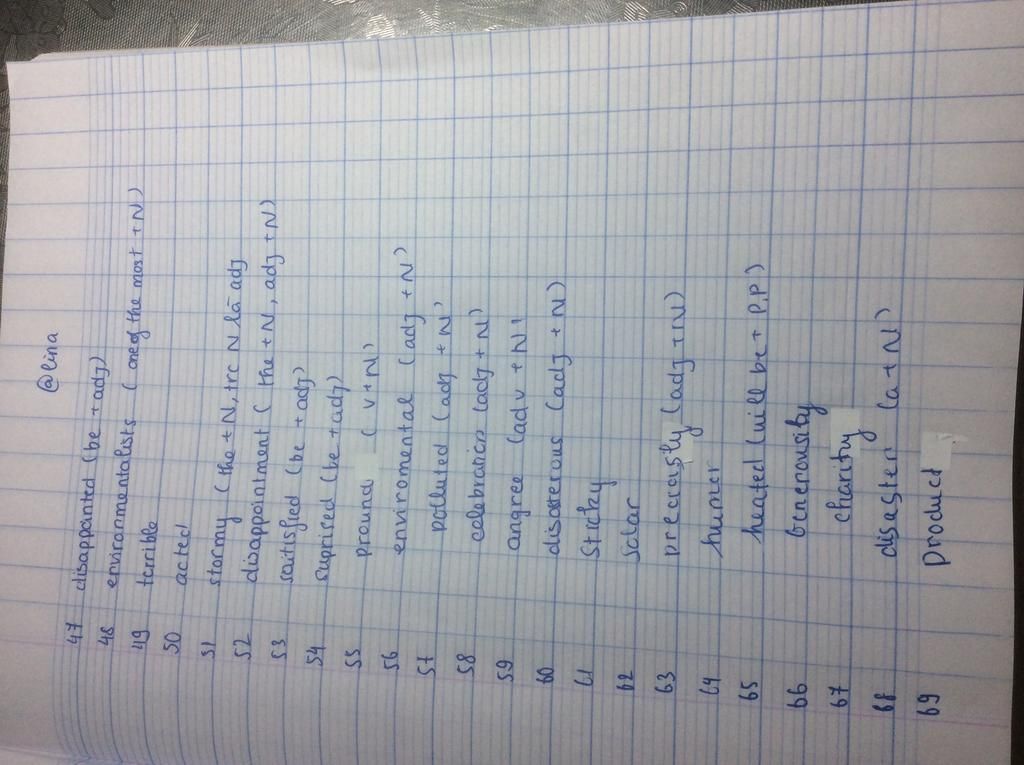 @lina
47 disappointed (be + adj)
48 environmentalists (one of the most + N)
49 terrible
50 acted
51 stormy (the + N, trc N là adj
52 disappointment (the + N, adj + N)
53 saitisfied (be + adj)
54 suprised (be + adj)
55 pround (v + N)
56 enviromental (adj + N)
57 polluted (adj + N)
58 celebration (adj + N)
59 angree (adv + N)
60 disasterous (adj + N)
61 Sticky
62 Solar
63 preciously (adj + N)
64 humor
65 heated (will be + P.P)
66 Generousity
67 charity
68 disaster (a + N)
69 Product